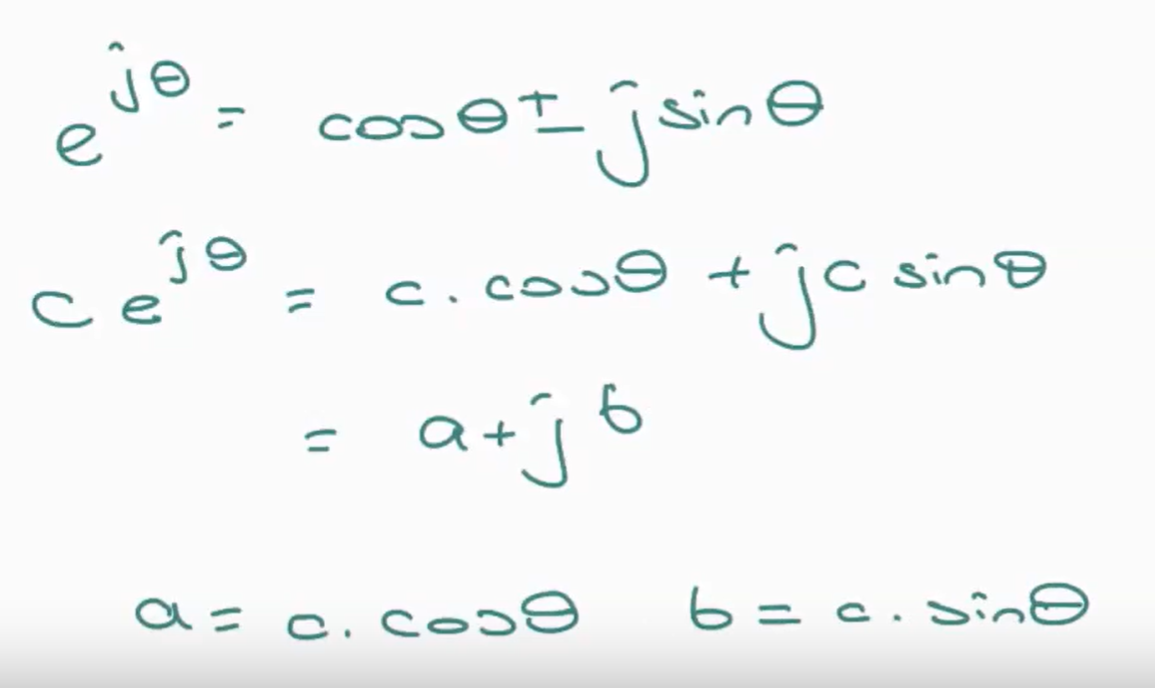 e^{jθ} = cosθ ± j sinθ
c e^{jθ} = c . cosθ + j c sinθ
= a + j b
a = c . cosθ b = c . sinθ